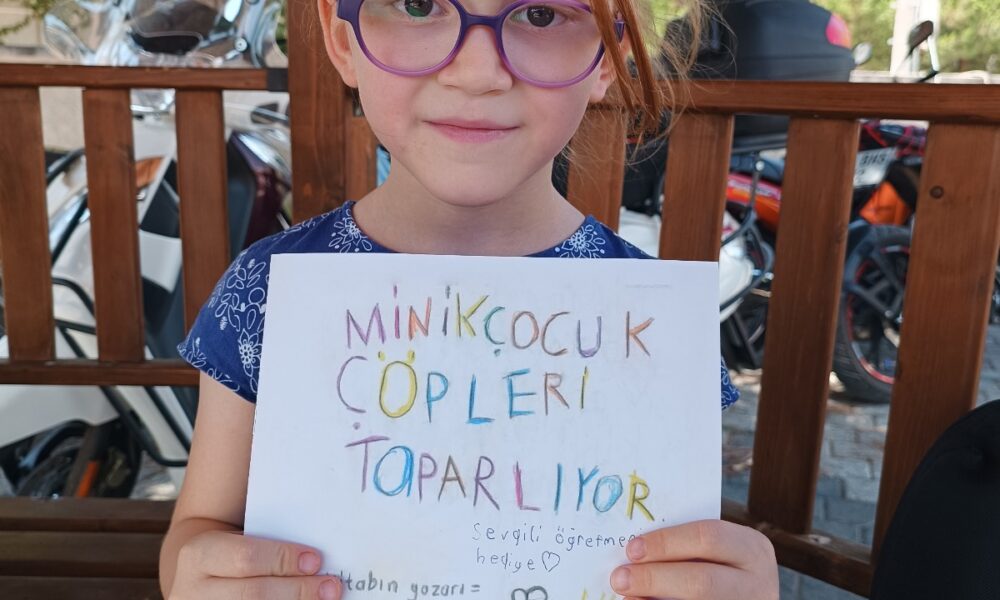 MİNİK ÇOCUK
ÇÖPLERİ
TOPARLIYOR.
Sevgili öğretme
hediye ♡
yazarı =